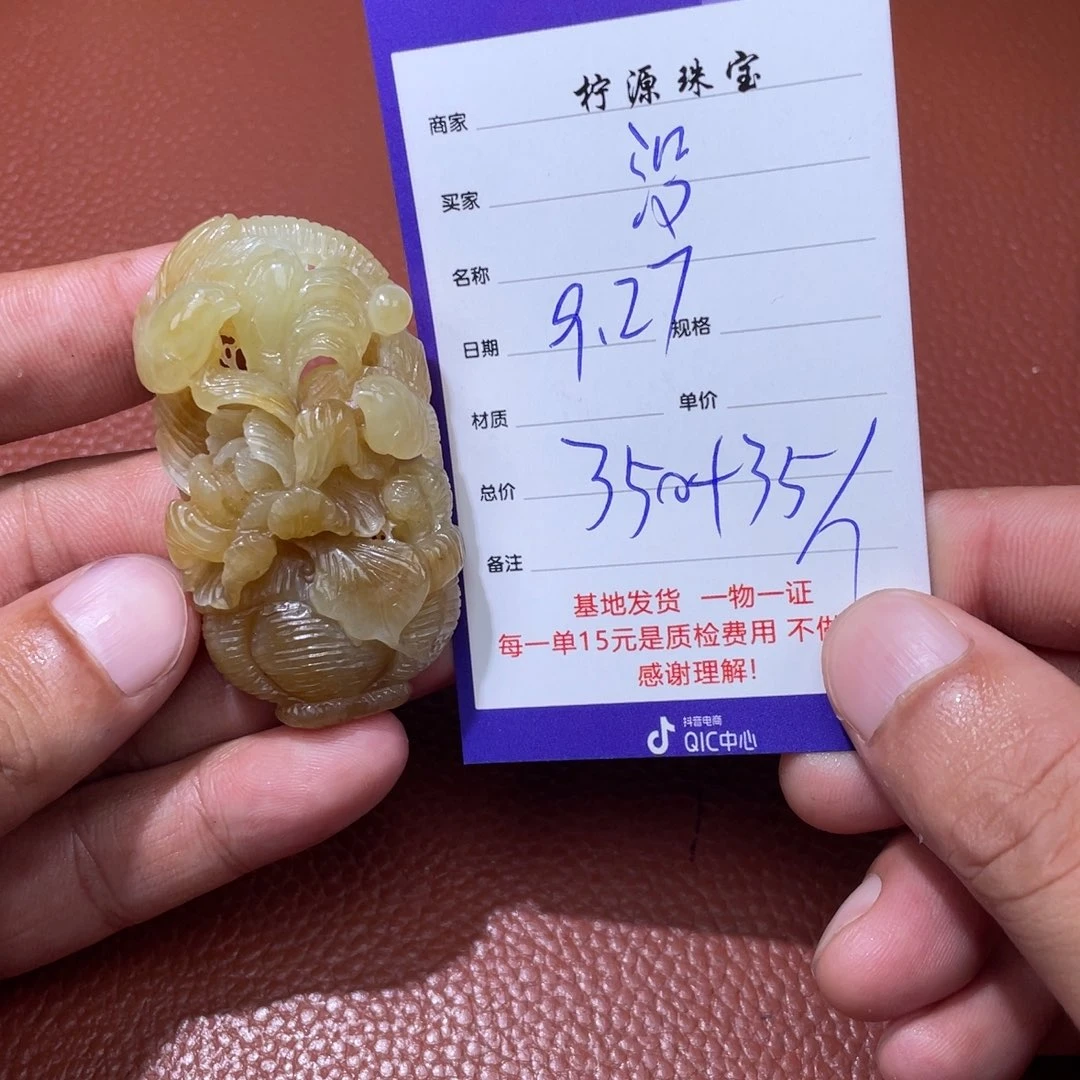 柠源珠宝
商家
买家
名称
日期 9.27 规格
材质 单价
总价
备注
基地发货 一物一证
每一单15元是质检费用 不
感谢理解!
抖音电商
QIC中心